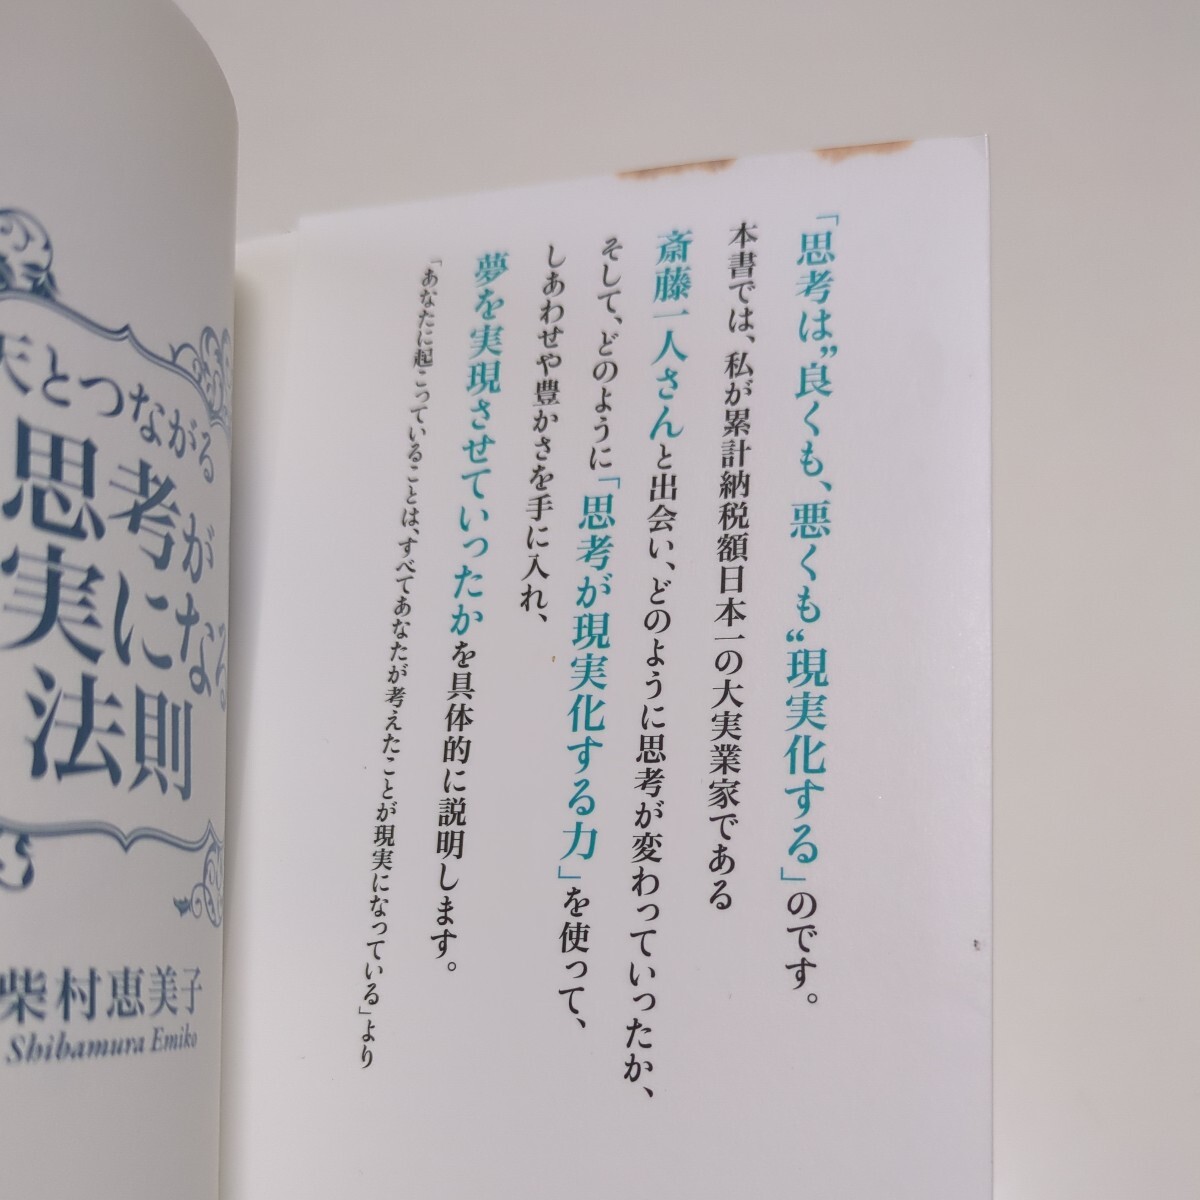 「思考は”良くも、悪くも“現実化する」のです。
本書では、私が累計納税額日本一の大実業家である
斎藤一人さんと出会い、どのように思考が変わっていったか、
そして、どのように「思考が現実化する力」を使って、
しあわせや豊かさを手に入れ、
夢を実現させていったかを具体的に説明します。
「あなたに起こっていることは、すべてあなたが考えたことが現実になっている」より
天とつながる
思考が
実になる
法則
柴村恵美子
Shibamura Emiko